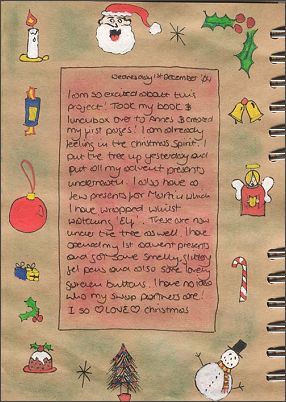 Wednesday 1st December '04
I am so excited about this
project! Took my book &
lunchbox over to Anne's & created
my first pages! I am already
feeling in the christmas spirit. I
put the tree up yesterday and
put all my advent presents
underneath. I also have a
few presents for Martin which
I have wrapped whilst
watching 'Elf'. These are now
under the tree as well. I have
opened my 1st advent presents
and got some smelly, glittery
gel pens and also some lovely
screen buttons. I have no idea
who my swap partners are!
I so ♡LOVE♡ christmas